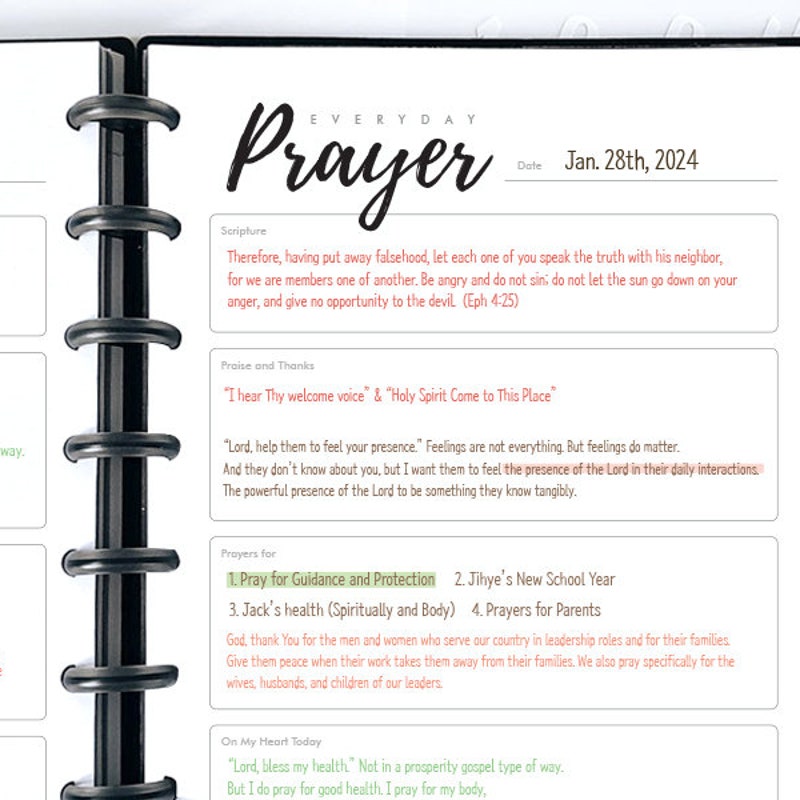 EVERYDAY
Prayer
Date Jan. 28th, 2024
Scripture
Therefore, having put away falsehood, let each one of you speak the truth with his neighbor,
for we are members one of another. Be angry and do not sin; do not let the sun go down on your
anger, and give no opportunity to the devil. (Eph 4:25)
Praise and Thanks
“I hear Thy welcome voice” & “Holy Spirit Come to This Place”
“Lord, help them to feel your presence.” Feelings are not everything. But feelings do matter.
And they don’t know about you, but I want them to feel the presence of the Lord in their daily interactions.
The powerful presence of the Lord to be something they know tangibly.
way.
Prayers for
1. Pray for Guidance and Protection 2. Jihye’s New School Year
3. Jack’s health (Spiritually and Body) 4. Prayers for Parents
God, thank You for the men and women who serve our country in leadership roles and for their families.
Give them peace when their work takes them away from their families. We also pray specifically for the
wives, husbands, and children of our leaders.
On My Heart Today
“Lord, bless my health.” Not in a prosperity gospel type of way.
But I do pray for good health. I pray for my body,